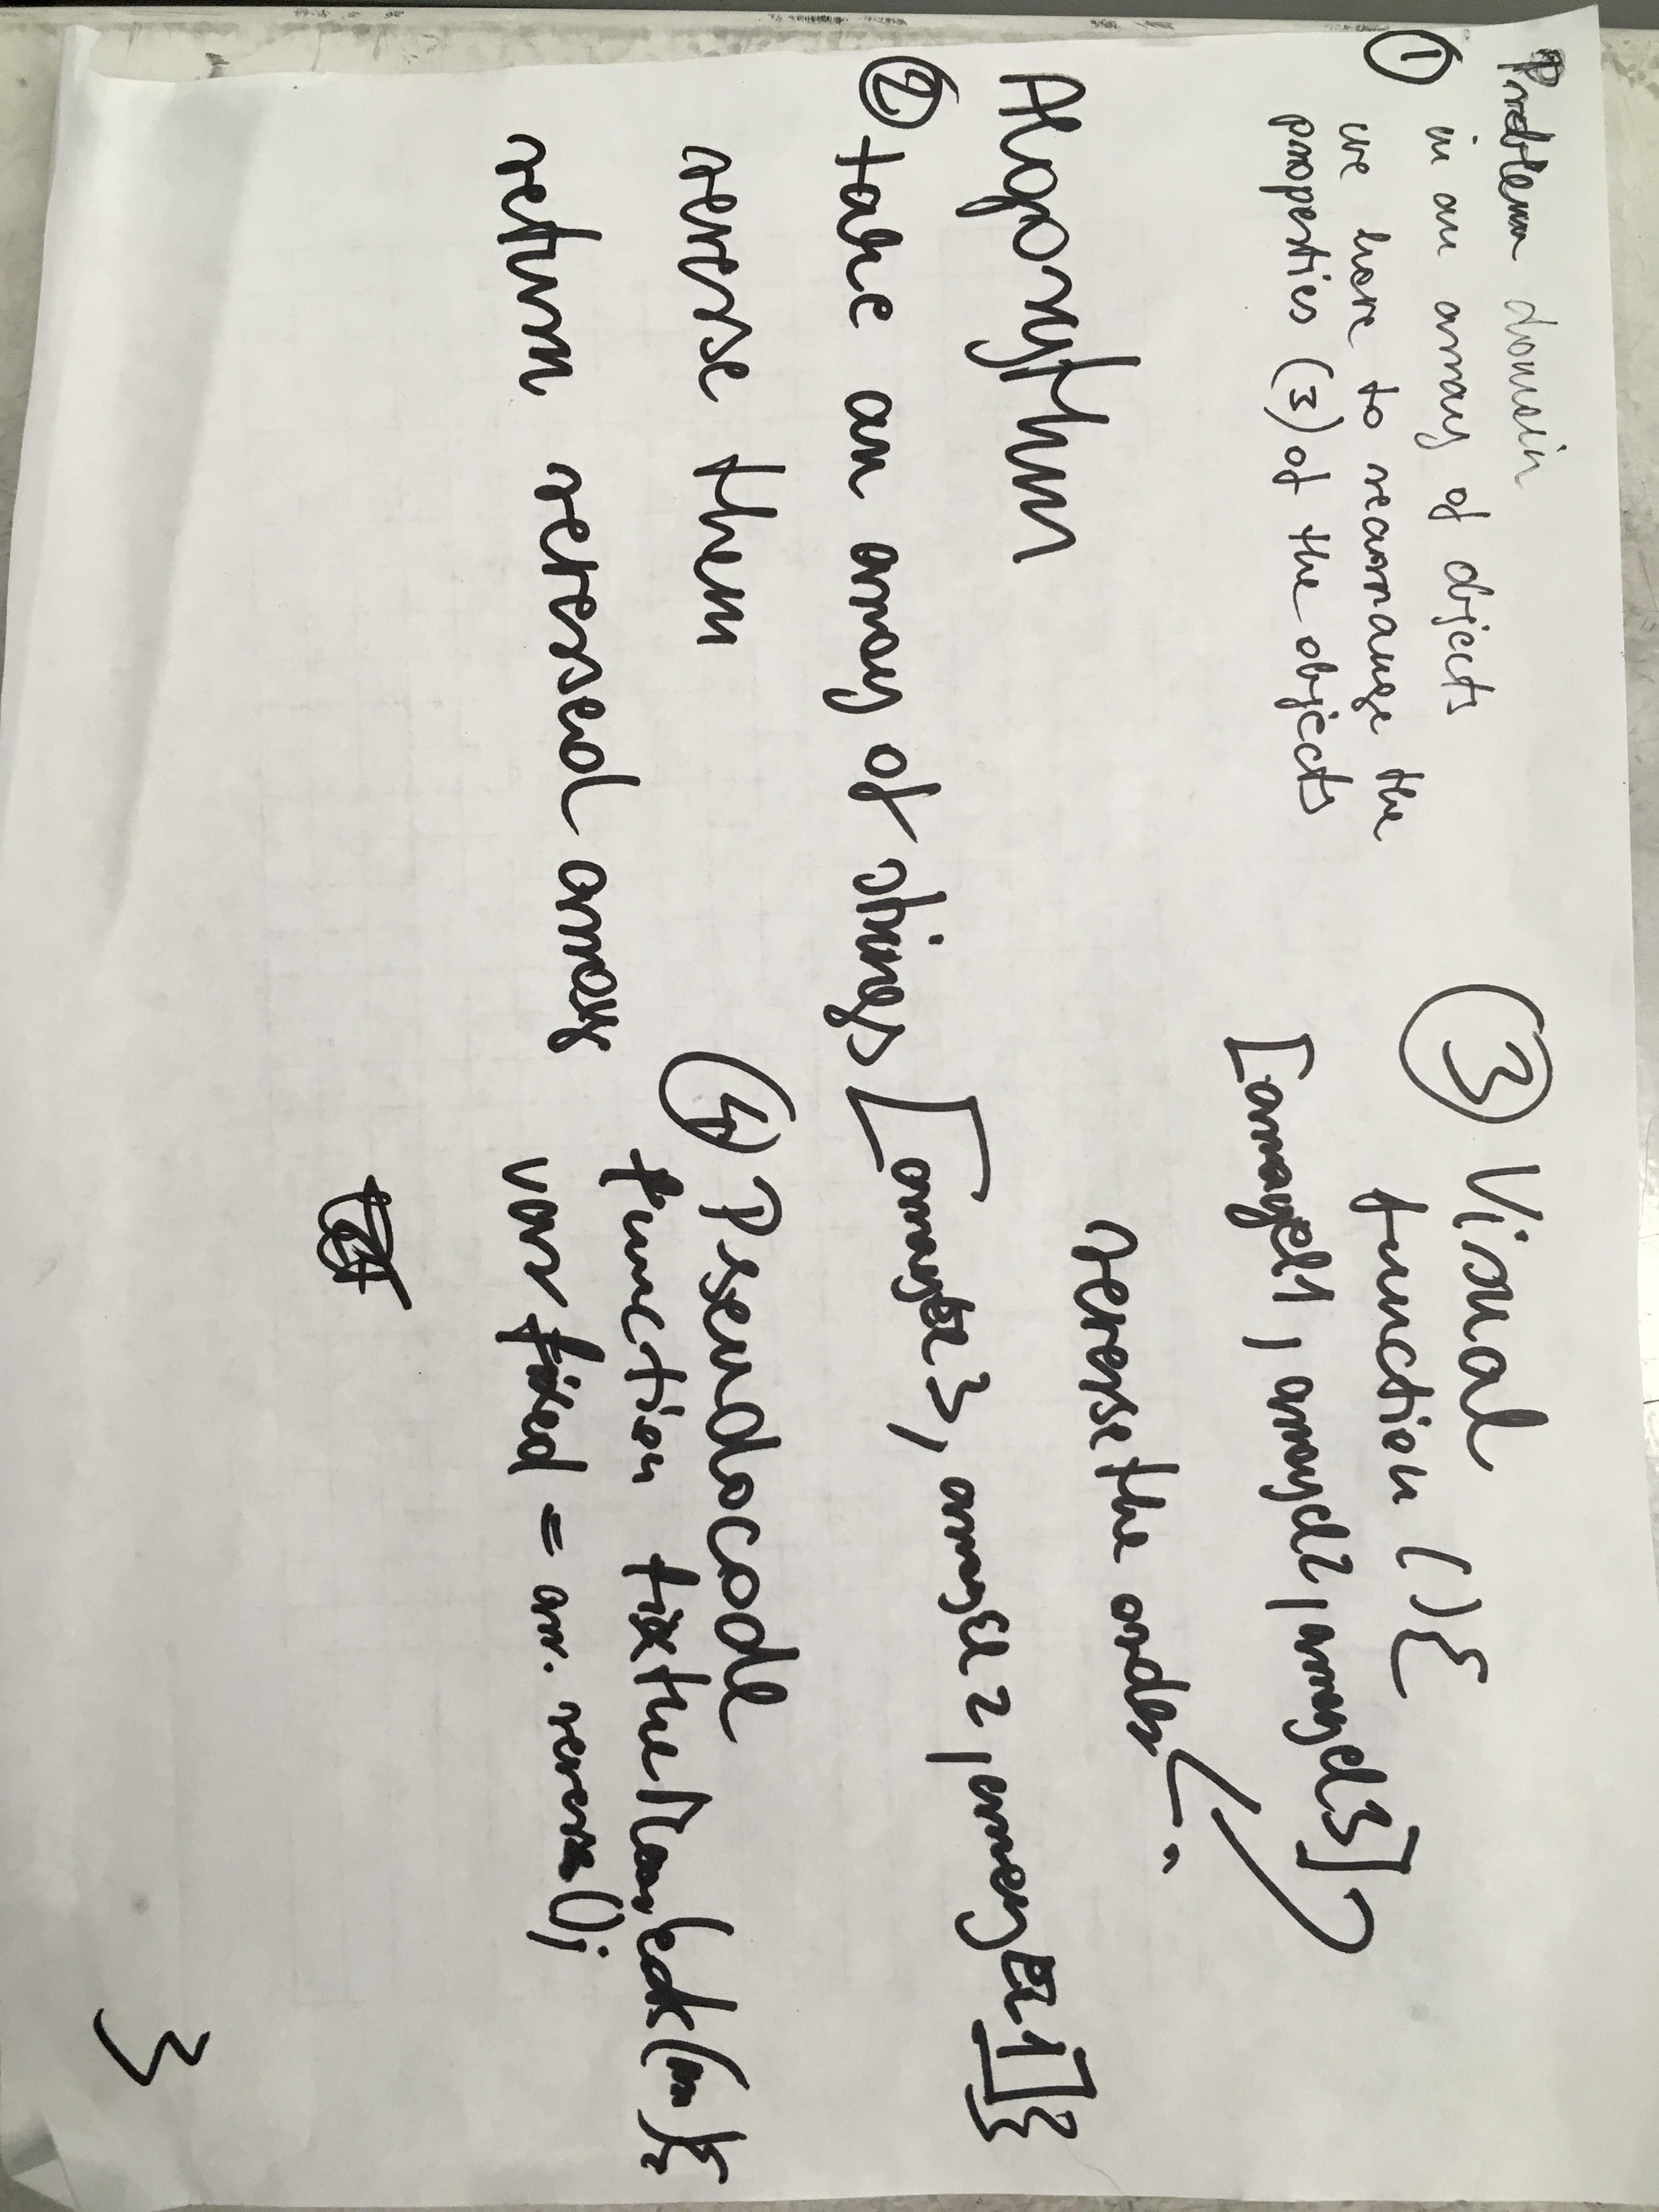 Problem domain
① in an array of objects
we have to rearrange the
properties (3) of the objects
Algorythm
② take an array of strings
reverse them
return reversed array
③ Visual
function () {
[arrayel1, arrayel2, arrayel3]
reverse the order
[arrayel3, arrayel2, arrayel1]}
④ Pseudocode
function fixthe (arr){
var fixed = arr.reverse();
}